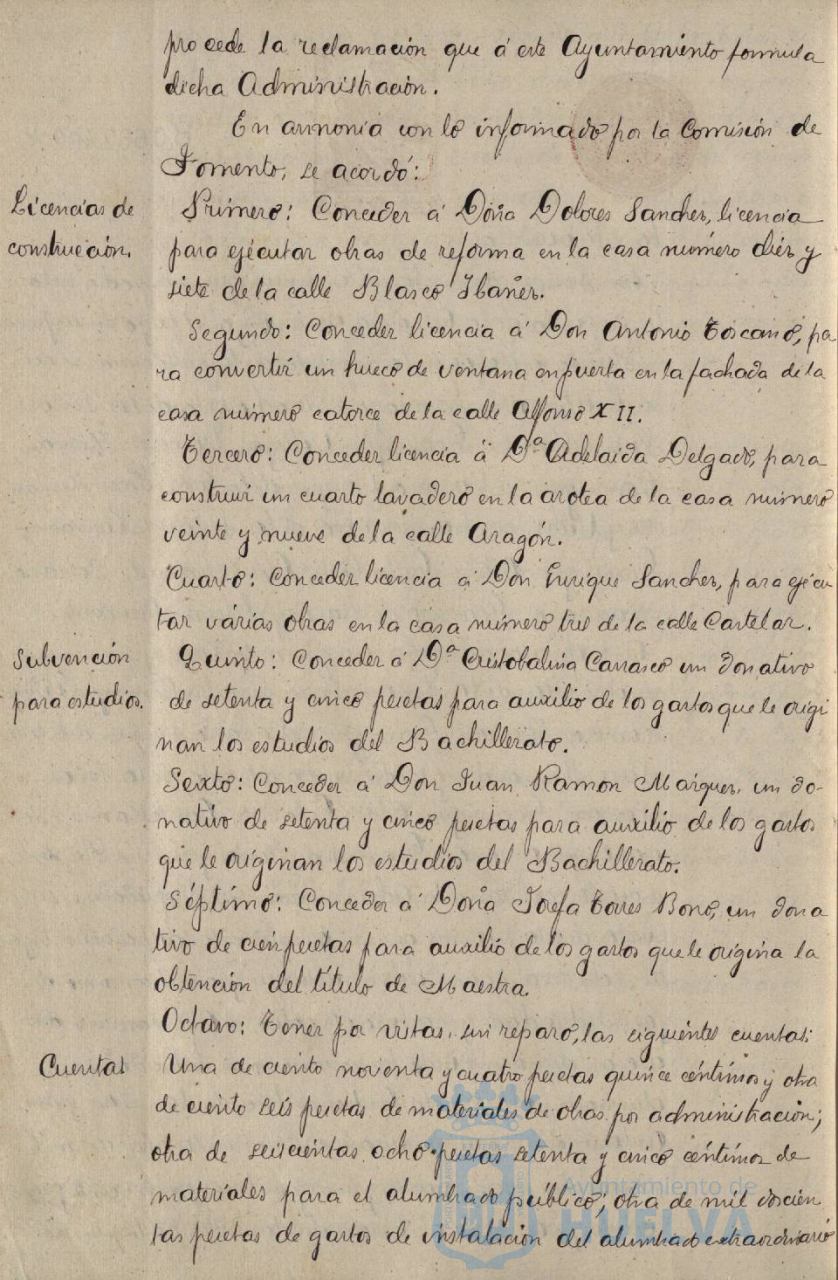 procede la reclamación que á este Ayuntamiento formula
dicha Administración.
En armonía con lo informado por la Comisión de
Fomento, se acordó:
Licencias de
construcción.
Primero: Conceder á Doña Dolores Sanchez, licencia
para ejecutar obras de reforma en la casa número diez y
siete de la calle Blasco Ibañez.
Segundo: Conceder licencia á Don Antonio Toscano, pa
ra convertir un hueco de ventana en puerta en la fachada de la
casa número catorce de la calle Alfonso XII.
Tercero: Conceder licencia á Dª Adelaida Delgado, para
construir un cuarto lavadero en la azotea de la casa número
veinte y nueve de la calle Aragón.
Cuarto: Conceder licencia á Don Enrique Sanchez, para ejecu
tar várias obras en la casa número tres de la calle Castelar.
Subvención
para estudios.
Quinto: Conceder á Dª Cristobalina Carrasco un donativo
de setenta y cinco pesetas para auxilio de los gastos que le origi
nan los estudios del Bachillerato.
Sexto: Conceder á Don Juan Ramon Marquez, un do-
nativo de setenta y cinco pesetas para auxilio de los gastos
que le originan los estudios del Bachillerato.
Séptimo: Conceder á Doña Josefa Torres Bono, un dona
tivo de cien pesetas para auxilio de los gastos que le origina la
obtención del título de Maestra.
Octavo: Tener por vistas, sin reparo, las siguientes cuentas:
Cuentas
Una de ciento noventa y cuatro pesetas quince céntimos y otra
de ciento seis pesetas de materiales de obras por administración;
otra de seiscientas ocho pesetas setenta y cinco céntimos de
materiales para el alumbrado público; otra de mil doscien
tas pesetas de gastos de instalación del alumbrado extraordinario
Ayuntamiento de
HUELVA